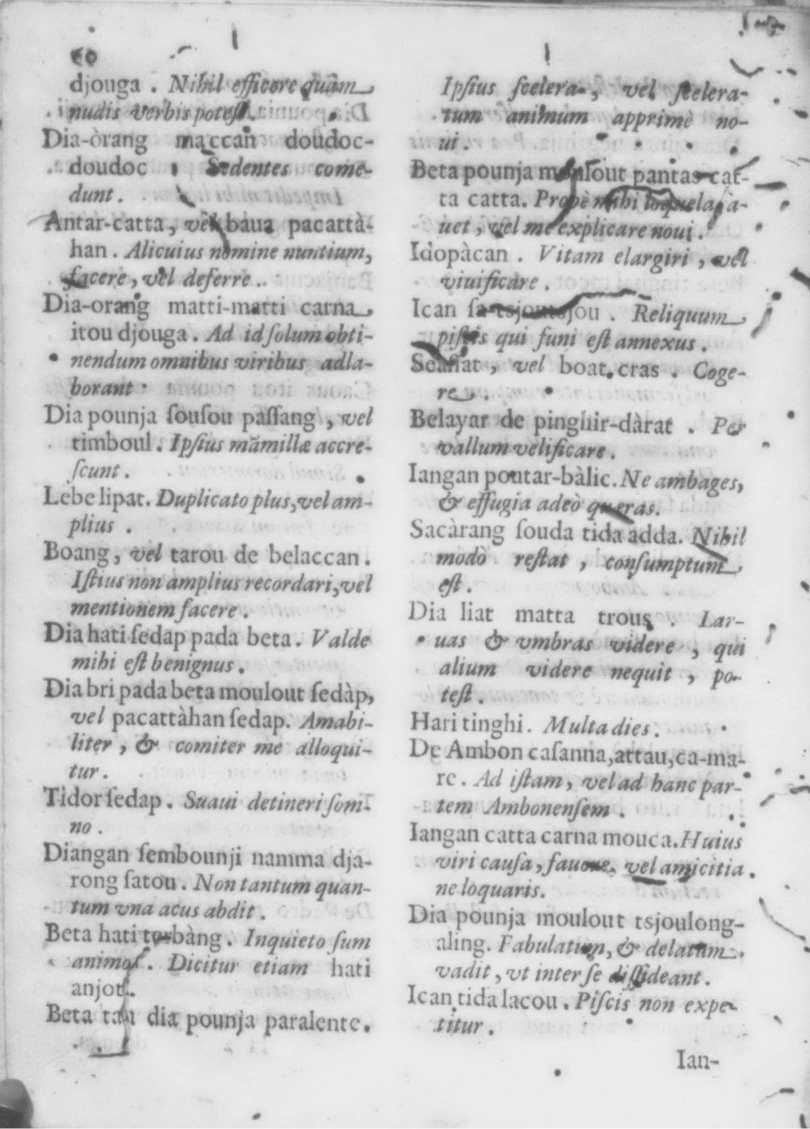 60
djouga . Nihil efficere quàm
nudis verbis potest.
Dia-òrang maccan doudoc-
doudoc . Sedentes come-
dunt .
Antar-catta, vel baua pacattà-
han . Alicuius nomine nuntium,
facere, vel deferre .
Dia-orang matti-matti carna
itou djouga . Ad id solum obti-
nendum omnibus viribus adla-
borant
Dia pounja sousou passang , vel
timboul . Ipsius mãmillæ accre-
scunt .
Lebe lipat. Duplicato plus, vel am-
plius .
Boang, vel tarou de belaccan .
Istius non amplius recordari, vel
mentionem facere .
Dia hati sedap pada beta . Valde
mihi est benignus .
Dia bri pada beta moulout sedàp,
vel pacattàhan sedap. Amabi-
liter , & comiter me alloqui-
tur .
Tidor sedap . Suaui detineri som-
no .
Diangan sembounji namma dja-
rong satou . Non tantum quan-
tum vna acus abdit .
Beta hati terbàng . Inquieto sum
animo . Dicitur etiam hati
anjot .
Beta tau dia pounja paralente .
Ipsius scelera , vel scelera-
tum animum apprimè no-
ui .
Beta pounja moulout pantas cat-
ta catta. Probè mihi loquela fa-
uet , vel me explicare noui .
Idopàcan . Vitam elargiri , vel
viuificare .
Ican . Reliquum
piscis qui funi est annexus .
vel boat cras . Coge-
re .
Belayar de pinghir-dàrat . Per
vallum velificare .
Iangan poutar-bàlic. Ne ambages,
& effugia adeò queras.
Sacàrang souda tida adda. Nihil
modò restat , consumptum
est .
Dia liat matta trous Lar-
uas & vmbras videre , qui
alium videre nequit , po-
test .
Hari tinghi . Multa dies .
De Ambon casanna, attau, ca-ma-
re . Ad istam, vel ad hanc par-
tem Ambonensem .
Iangan catta carna mouca. Huius
viri causa, fauore, vel amicitia
ne loquaris.
Dia pounja moulout tsjoulong-
aling. Fabulatum, & delatum
vadit , vt inter se dissideant .
Ican tida lacou . Piscis non expe-
titur .
Ian-